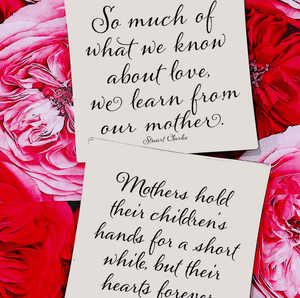 So much of
what we know
about love,
we learn from
our mother.
Stuart Clarke
Mothers hold
their children's
hands for a short
while, but their
hearts forever